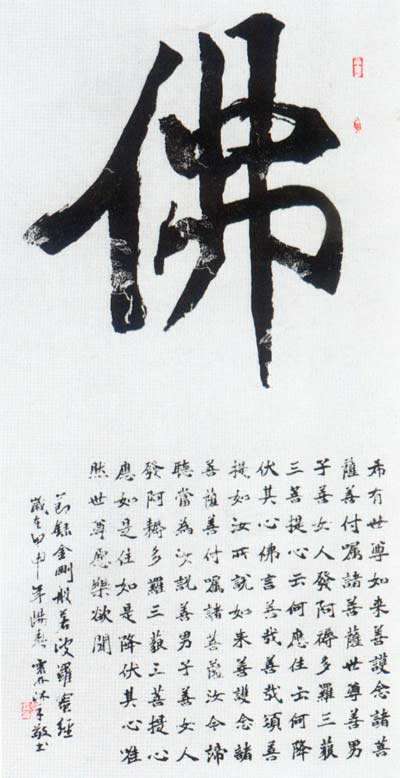 佛
希有世尊如来善護念諸菩
薩善付囑諸菩薩世尊善男
子善女人發阿耨多羅三藐
三菩提心云何應住云何降
伏其心佛言善哉善哉須菩
提如汝所說如来善護念諸
菩薩善付囑諸菩薩汝今諦
聽當為汝說善男子善女人
發阿耨多羅三藐三菩提心
應如是住如是降伏其心唯
然世尊愿樂欲聞
節錄金剛般若波羅蜜經
歲在甲申年陽春沐手敬书